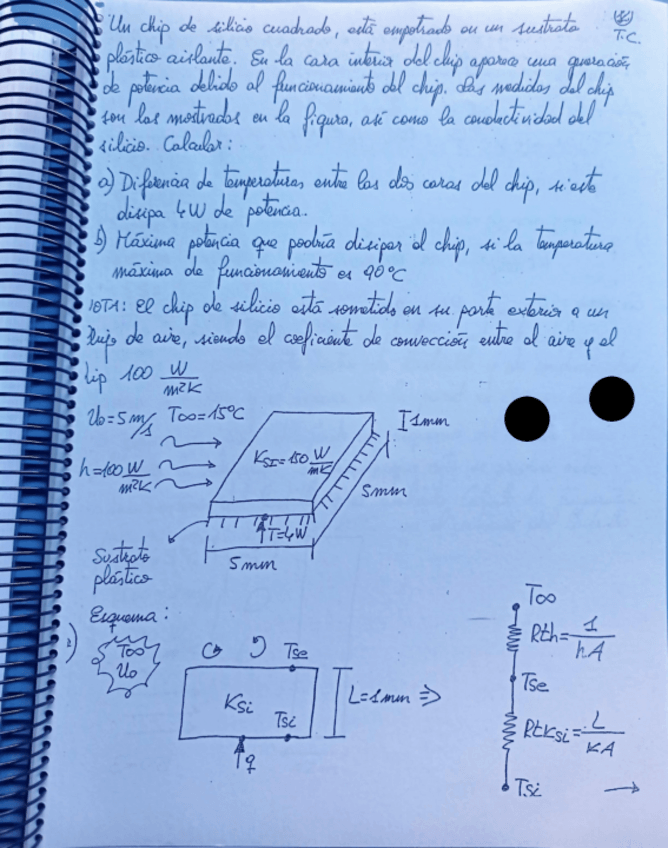 Un chip de silicio cuadrado, está empotrado en un sustrato
T.C.
plástico aislante. En la cara interior del chip aparece una generación
de potencia debido al funcionamiento del chip. Las medidas del chip
son las mostradas en la figura, así como la conductividad del
silicio. Calcular:
a) Diferencia de temperaturas entre las dos caras del chip, si este
disipa 4W de potencia.
b) Máxima potencia que podría disipar el chip, si la temperatura
máxima de funcionamiento es 90°C
NOTA: El chip de silicio está sometido en su parte exterior a un
flujo de aire, siendo el coeficiente de convección entre el aire y el
chip 100 W/m²K
U0=5m/s T∞=15°C
1mm
KSI=150 W/mK
h=100 W/m²K
5mm
T=4W
Sustrato
plástico
5mm
Esquema:
T∞
U0
Tse
KSi
Tsi
L=1mm ⇒
q
T∞
Rth=1/hA
Tse
RtKSi=L/KA
Tsi →